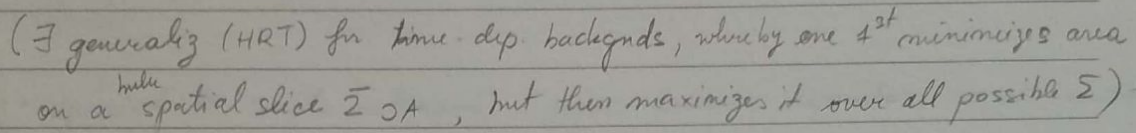 (∃ generaliz (HRT) for time-dep. backgnds, whereby one 1st minimizes area
on a bulk spatial slice Σ ⊃ A, but then maximizes it over all possible Σ)